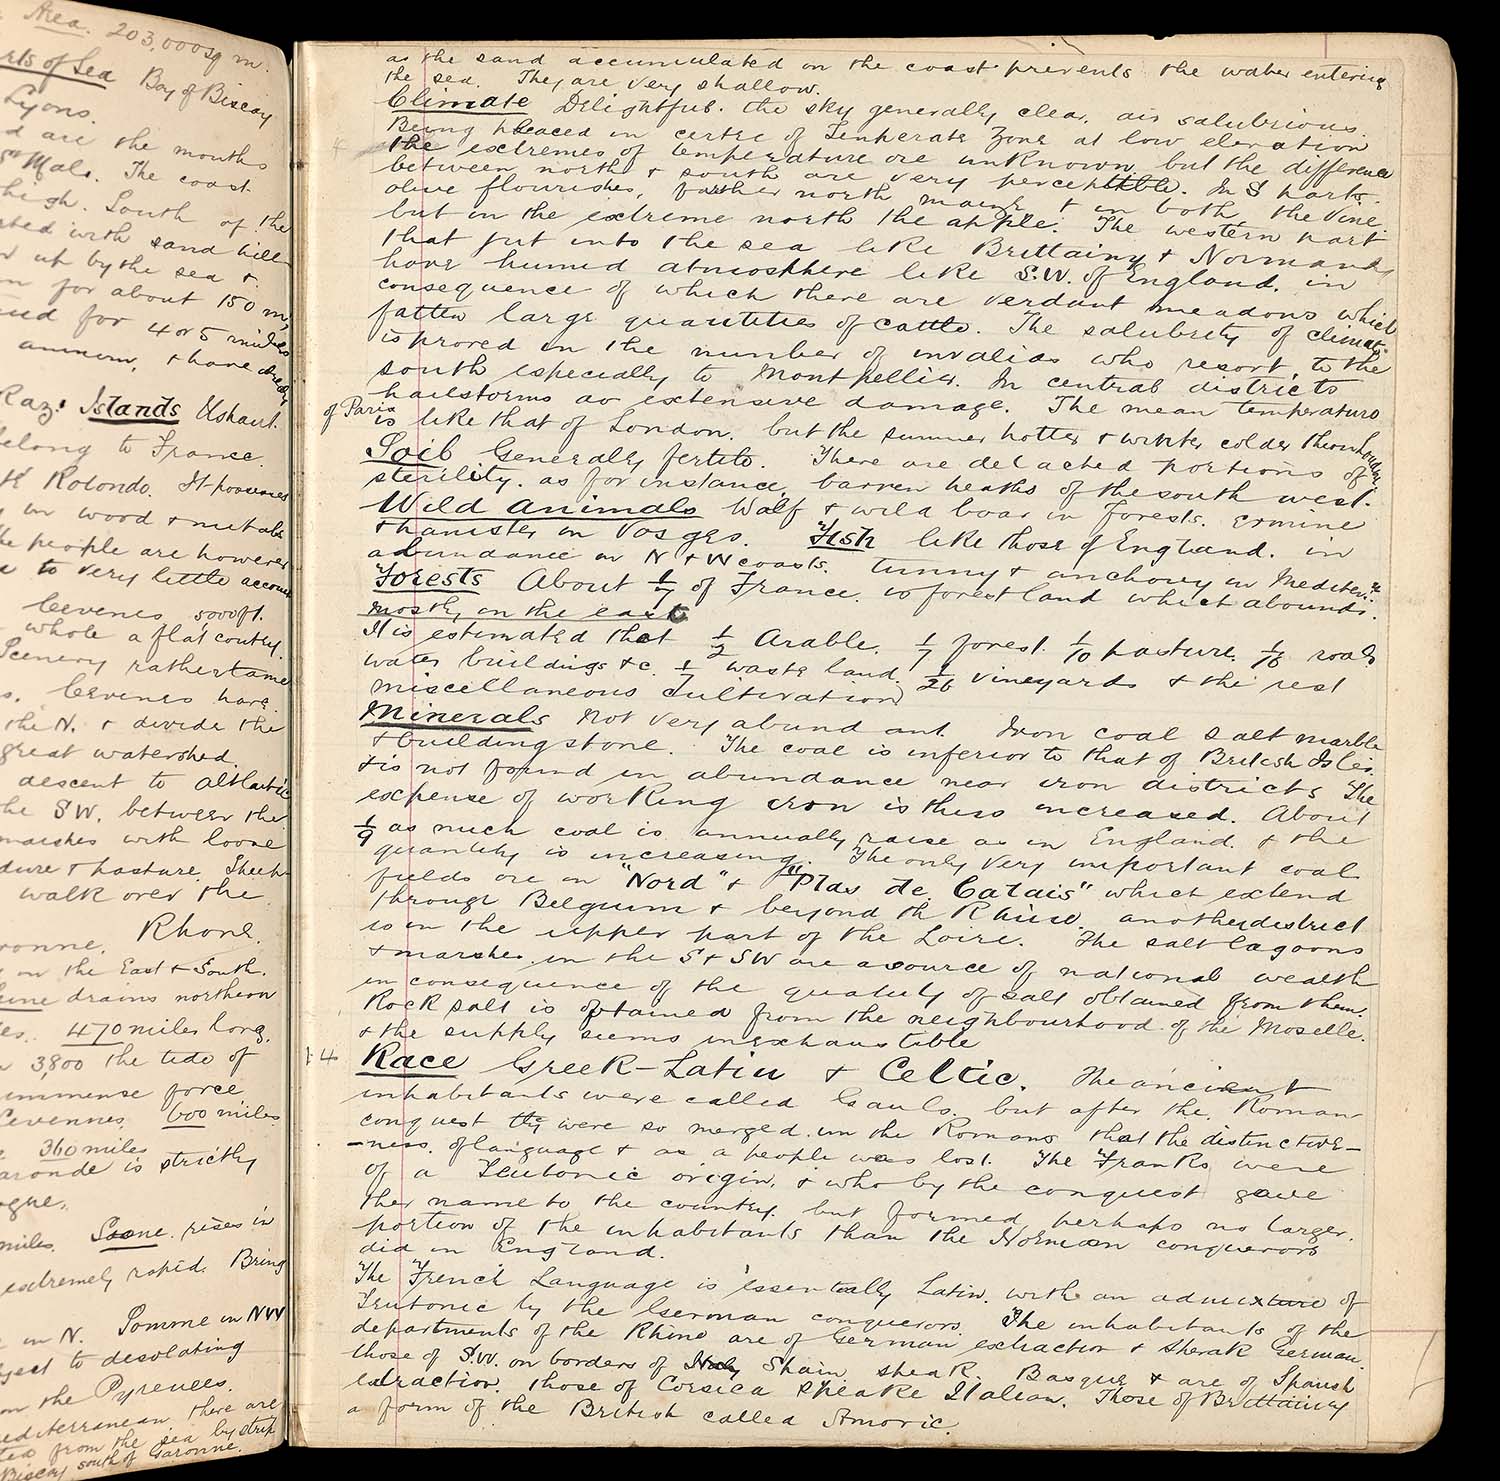 Area. 203,000 sq m.
Parts of Sea Bay of Biscay
Lyons.
are the mouths
St Malo. The coast
high. South of the
with sand hills
up by the sea +
for about 150 m,
and for 4 or 5 miles
+ have already
Raz. Islands Ushant.
belong to France.
Rotondo. It possesses
in wood + metals
the people are however
to very little account
Cevenes 5000ft.
whole a flat country.
Scenery rather tame
Cevenes have
the N. + divide the
great watershed.
descent to Atlantic
the SW. between the
marshes with loose
+ pasture. Sheep
walk over the
Rhone.
on the East + South.
drains northern
470 miles long.
3,800 the tide of
immense force
Cevennes. 600 miles
360 miles
is strictly
miles. Soane. rises in
extremely rapid. Bring
in N. Somme in NW
to desolating
on the Pyrenees.
there are
from the sea by strip
Biscay south of Garonne.
as the sand accumulated on the coast prevents the water entering
the sea. They are very shallow.
Climate Delightful. the sky generally clear, air salubrious.
Being placed in centre of Temperate Zone at low elevation
the extremes of temperature are unknown but the difference
between north + south are very perceptible. In S parts.
olive flourishes, farther north maize + in both the vine.
but in the extreme north the apple. The western part
that jut into the sea like Brittainy + Normandy
have humid atmosphere like S.W. of England. in
consequence of which there are verdant meadows which
fatten large quantities of cattle. The salubrity of climate
is proved in the number of invalids who resort to the
south especially to Montpellier. In central districts
hailstorms do extensive damage. The mean temperature
of Paris is like that of London. but the summer hotter + winter colder than London
Soil Generally fertile. There are detached portions of
sterility. as for instance, barren heaths of the south west.
Wild animals Wolf + wild boar in forests. ermine
+ hamster in Vosges. Fish like those of England. in
abundance on N + W coasts. tunny + anchovy in Mediterrn
Forests About 1/7 of France is forest land which abounds.
mostly in the east
It is estimated that 1/2 Arable. 1/7 forest. 1/10 pasture. 1/16 roads
water buildings &c. 1/7 waste land. 1/26 vineyards + the rest
miscellaneous cultivation
Minerals Not very abundant. Iron coal salt marble
+ building stone. The coal is inferior to that of British Isles
+ is not found in abundance near iron districts The
expense of working iron is thus increased. About
1/9 as much coal is annually raise as in England. + the
quantity is increasing. The only very important coal
fields are in "Nord" + "Plas de Calais" which extend
through Belguim + beyond th Rhine. another district
is in the upper part of the Loire. The salt lagoons
+ marshes in the S + SW are a source of national wealth
in consequence of the quatity of salt obtained from them.
Rock salt is obtained from the neighbourhood of the Moselle.
+ the supply seems inexhaustible
14 Race Greek-Latin + Celtic. The ancient
inhabitants were called Gauls. but after the Roman
conquest thy were so merged in the Romans that the distinctive-
-ness. of language + as a people was lost. The Franks were
of a Teutonic origin, + who by the conquest gave
ther name to the country. but formed perhaps no larger.
portion of the inhabitants than the Norman conquerors
did in England.
The French Language is essentially Latin. with an admixture of
Teutonic by the German conquerors. The inhabitants of the
departments of the Rhine are of German extraction + speak German.
those of S.W. on borders of Spain speak Basque + are of Spanish
extraction. those of Corsica speake Italian. Those of Brittainy
a form of the British called Amoric.